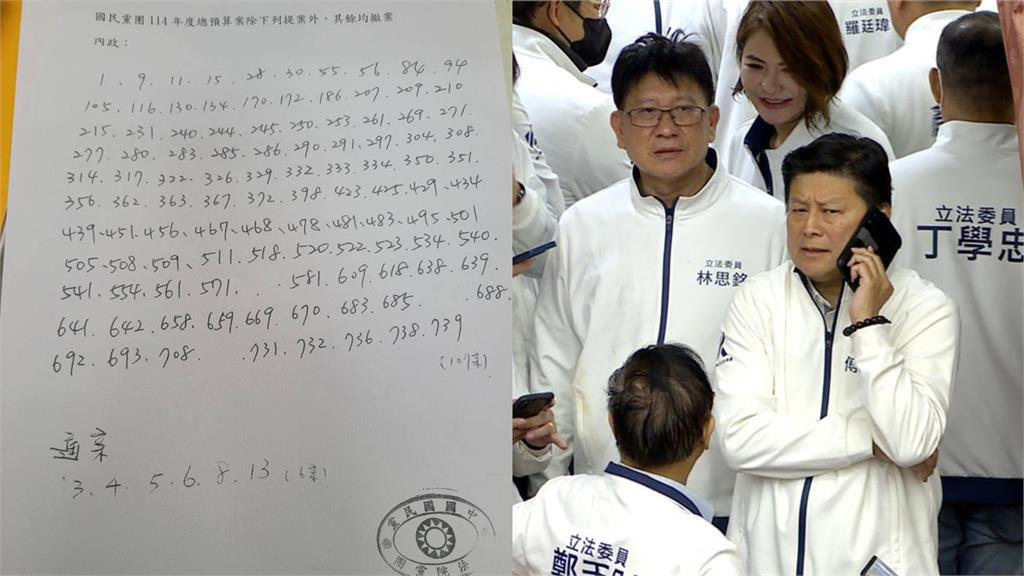 國民黨團 114 年度總預算案除下列提案外，其餘均撤案
內政：
1．9．11．15．28．30．55．56．84．94
105．116．130．134．170．172．186．207．209．210
215．231．240．244．245．250．253．261．269．271．
277．280．283．285．286．290．291．297．304．308．
314．317．322．326．329．332．333．334．350．351．
356．362．363．367．372．398．423．425．429、434
439、451、456、467、468、478、481、483、495、501
505、508、509、511．518．520．522．523．534．540．
541．554．561．571．581．609．618．638．639．
641．642．658．659．669．670．683．685．688．
692．693．708．731．732．736．738．739
(107案)
通案
3．4．5．6．8．13 (6案)
中國國民黨
立法委員
羅廷瑋
立法委員
林思銘
立法委員
丁學忠
傅
立法委員
鄭